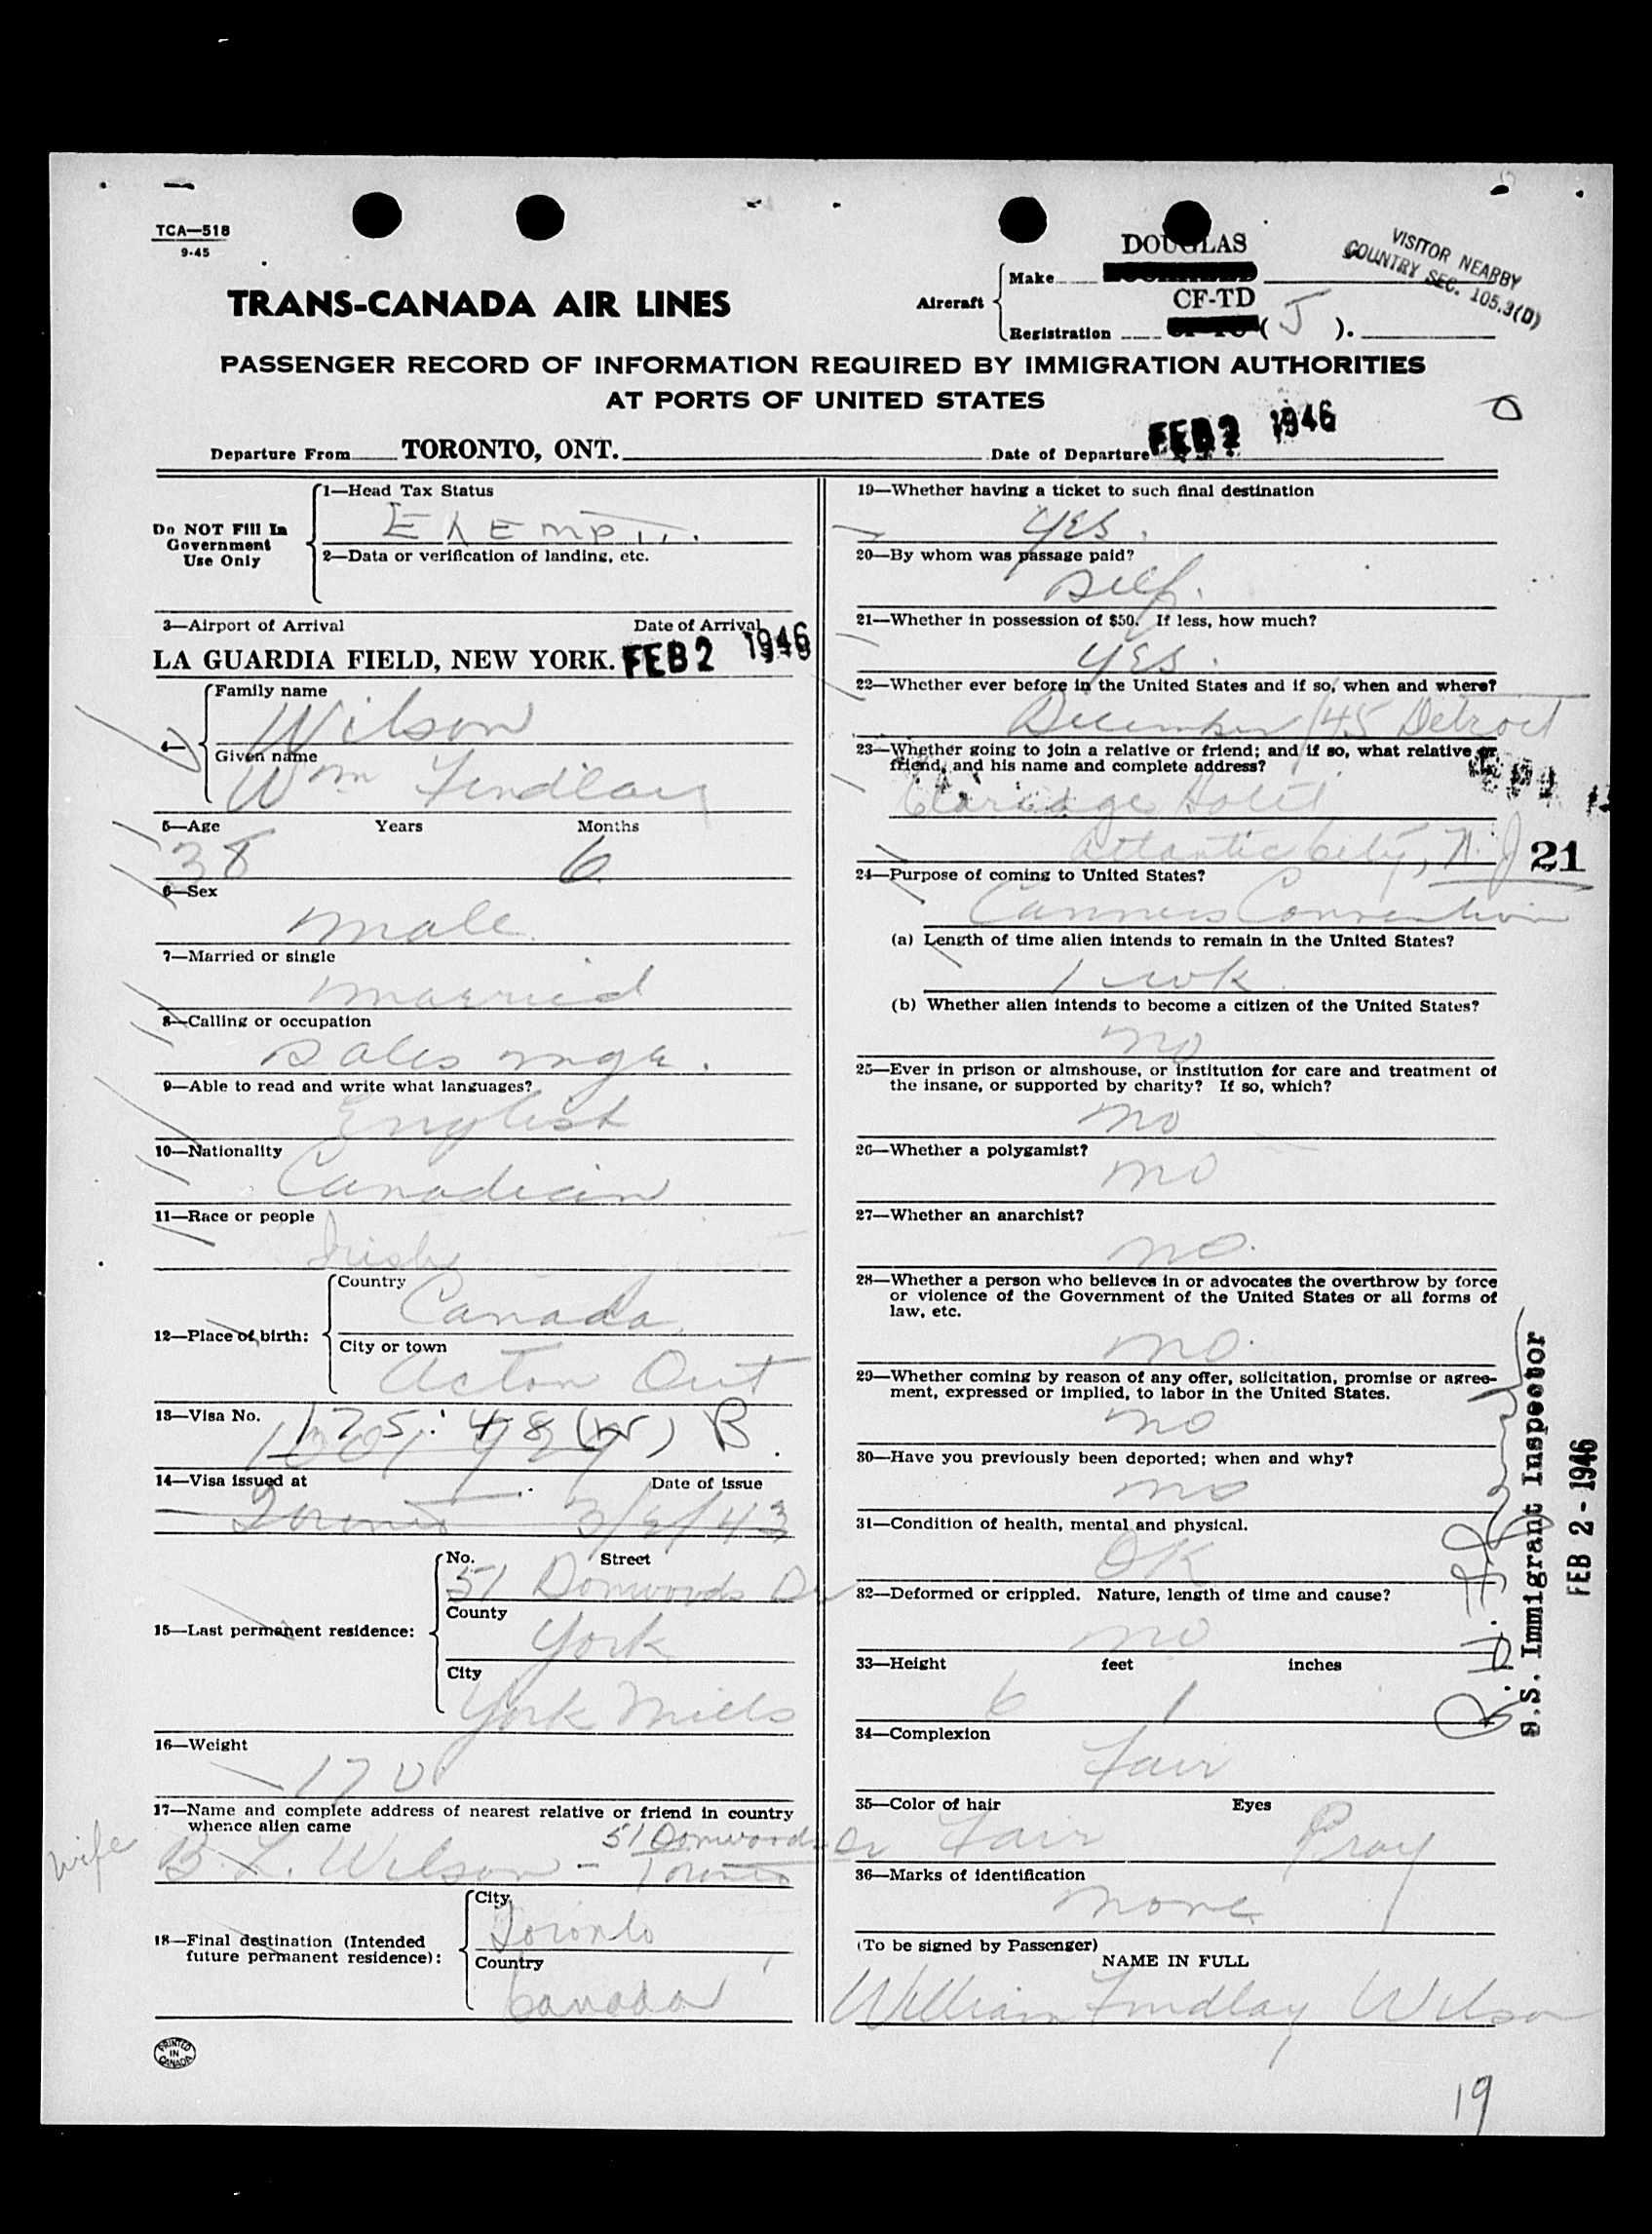 TCA—518
9-45
TRANS-CANADA AIR LINES
Aircraft
Make
DOUGLAS
Registration
CF-TD
( J ).
VISITOR NEARBY
COUNTRY SEC. 105.3(D)
PASSENGER RECORD OF INFORMATION REQUIRED BY IMMIGRATION AUTHORITIES
AT PORTS OF UNITED STATES
Departure From TORONTO, ONT.
Date of Departure FEB 2 1946
Do NOT Fill In
Government
Use Only
1—Head Tax Status
Exempt
2—Data or verification of landing, etc.
3—Airport of Arrival Date of Arrival
LA GUARDIA FIELD, NEW YORK. FEB 2 1946
4—
Family name
Wilson
Given name
Wm Findlay
5—Age Years Months
38 6
6—Sex
male
7—Married or single
married
8—Calling or occupation
Sales mgr.
9—Able to read and write what languages?
English
10—Nationality
Canadian
11—Race or people
Irish
12—Place of birth:
Country
Canada
City or town
Acton Ont
13—Visa No.
175:48 (w) B
14—Visa issued at Date of issue
Toronto 3/9/43
15—Last permanent residence:
No. Street
51 Donwoods Dr
County
York
City
York Mills
16—Weight
170
17—Name and complete address of nearest relative or friend in country
whence alien came
51 Donwoods Dr
wife B. L. Wilson – Toronto
18—Final destination (Intended
future permanent residence):
City
Toronto
Country
Canada
PRINTED
IN
CANADA
19—Whether having a ticket to such final destination
yes.
20—By whom was passage paid?
self.
21—Whether in possession of $50. If less, how much?
yes.
22—Whether ever before in the United States and if so, when and where?
December /45 Detroit
23—Whether going to join a relative or friend; and if so, what relative or
friend, and his name and complete address?
Claridge Hotel
Atlantic City, N.J.
21
24—Purpose of coming to United States?
Canners Convention
(a) Length of time alien intends to remain in the United States?
1 wk
(b) Whether alien intends to become a citizen of the United States?
no
25—Ever in prison or almshouse, or institution for care and treatment of
the insane, or supported by charity? If so, which?
no
26—Whether a polygamist?
no
27—Whether an anarchist?
no.
28—Whether a person who believes in or advocates the overthrow by force
or violence of the Government of the United States or all forms of
law, etc.
no.
29—Whether coming by reason of any offer, solicitation, promise or agree-
ment, expressed or implied, to labor in the United States.
no
30—Have you previously been deported; when and why?
no
31—Condition of health, mental and physical.
OK
32—Deformed or crippled. Nature, length of time and cause?
no
33—Height feet inches
6 1
34—Complexion
Fair
35—Color of hair Eyes
Fair Gray
36—Marks of identification
none
(To be signed by Passenger)
NAME IN FULL
William Findlay Wilson
U.S. Immigrant Inspector
FEB 2 - 1946
19